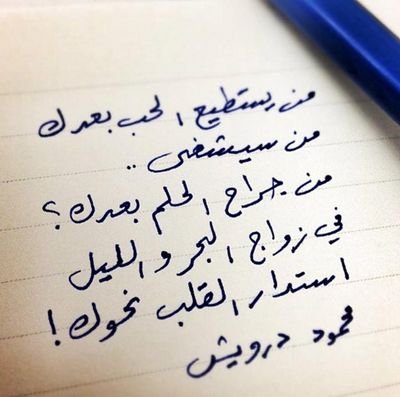 من يستطيع الحب بعدك
من سيشفى ..
من جراح الحلم بعدك ؟
في زواج البحر والليل
استدار القلب نحوك !
محمود درويش